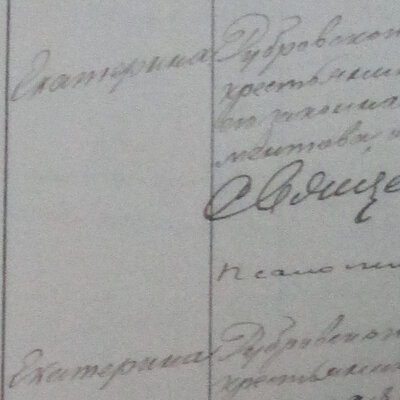 Екатерина
Дубровской
крестьянин
его законна
ментова,
Свяще
Псаломщ
Екатерина
Дубровской
крестьянин